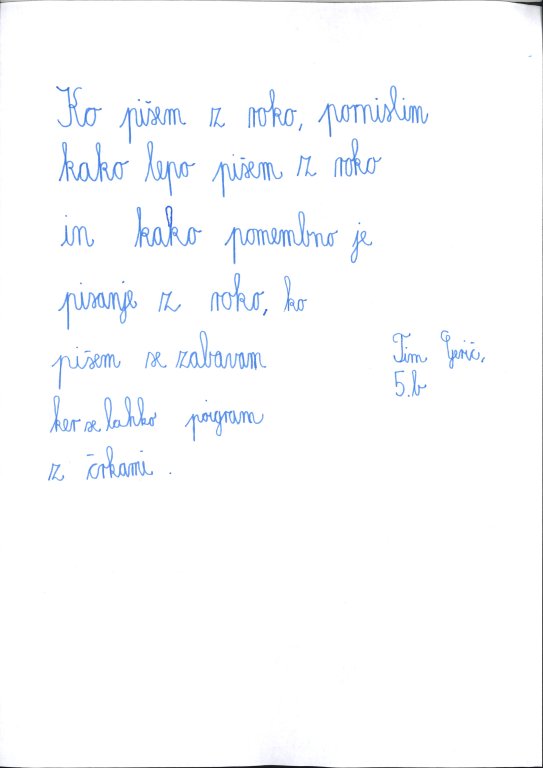 Ko pišem z roko, pomislim
kako lepo pišem z roko
in kako pomembno je
pisanje z roko, ko
pišem se zabavam
ker se lahko poigram
z črkami.
Tim Gerič,
5.b